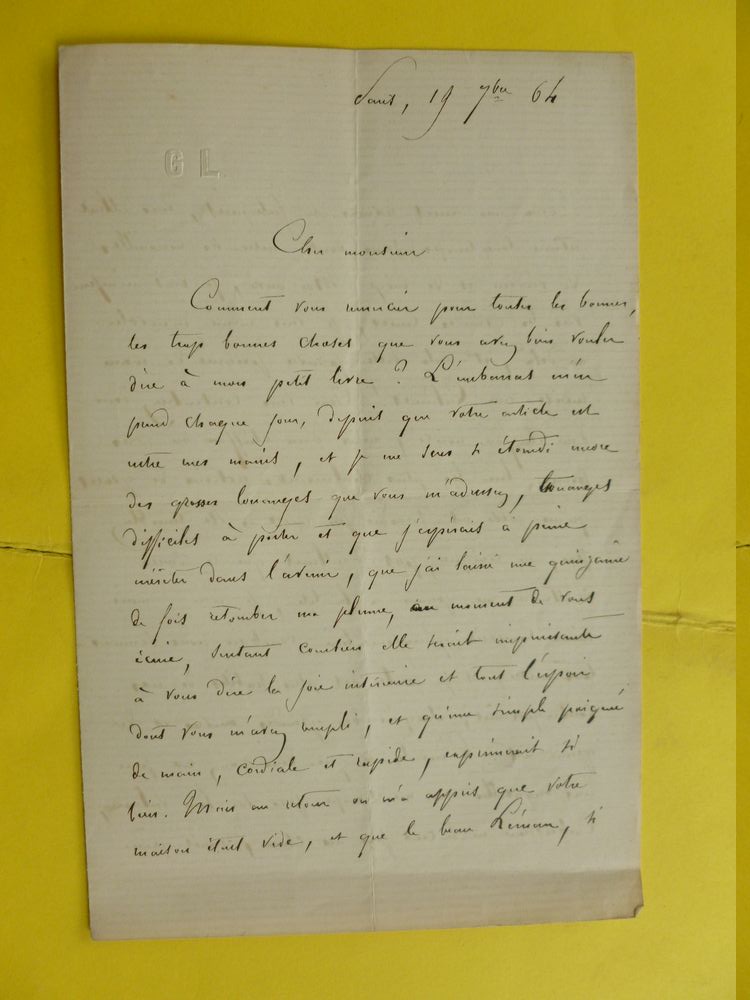 Paris, 19 7bre 64
G L
Cher monsieur
Comment vous remercier pour toutes les bonnes,
les trop bonnes choses que vous avez bien voulu
dire à mon petit livre ? L'embarras m'en
prend chaque jour, depuis que votre article est
entre mes mains, et je me sens si étourdi encore
des grosses louanges que vous m'adressez, louanges
difficiles à porter et que j'espérais à peine
mériter dans l'avenir, que j'ai laissé une quinzaine
de fois retomber ma plume, au moment de vous
écrire, sentant combien elle serait impuissante
à vous dire la joie intérieure et tout l'espoir
dont vous m'avez rempli, et qu'une simple poignée
de main, cordiale et rapide, exprimerait si
bien. Mais au retour on m'a appris que votre
maison était vide, et que le beau Léman, si